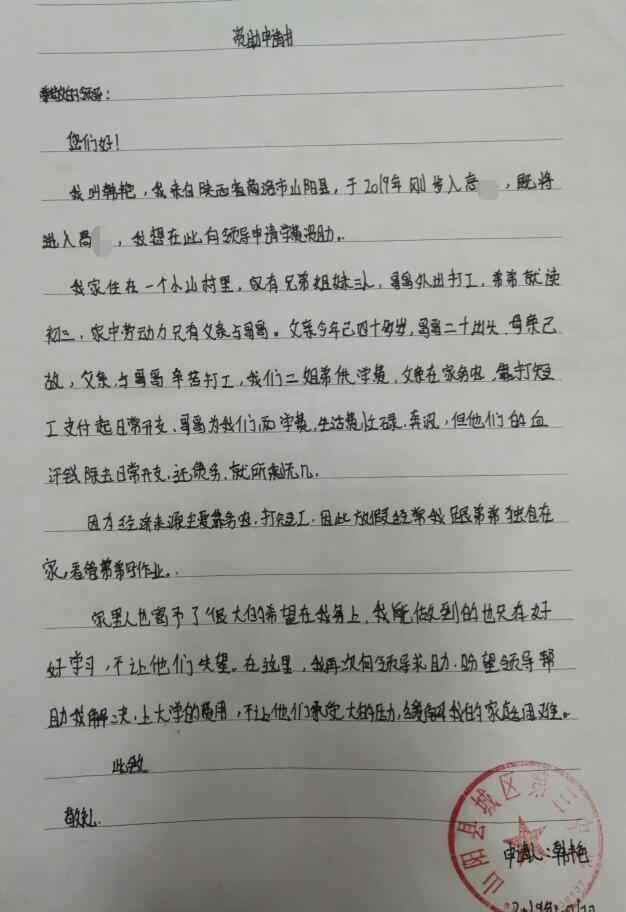 资助申请书
尊敬的领导：
您们好！
我叫韩艳，我来自陕西省商洛市山阳县，于2019年刚步入高，既将
进入高，我想在此向领导申请学费资助。
我家住在一个小山村里，家有兄弟姐妹三人，哥哥外出打工，弟弟就读
初三，家中劳动力只有父亲与哥哥。父亲今年已四十多岁，哥哥二十出头，母亲已
故，父亲与哥哥辛苦打工，我们二姐弟供学费，父亲在家务农，靠打短
工支付起日常开支，哥哥为我们两学费，生活费忙碌，奔讯，但他们的血
汗钱除去日常开支，还债务，就所剩无几。
因为经济来源主要靠务农，打短工，因此放假经常我跟弟弟独自在
家，看管弟弟写作业。
家里人也寄予了很大的希望在我身上，我能做到的也只有好
好学习，不让他们失望。在这里，我再次向领导求助，盼望领导帮
助我解决，上大学的费用，不让他们承受大的压力，缓解我的家庭困难。
此致
敬礼
申请人：韩艳
山阳县城区第三中
2019年